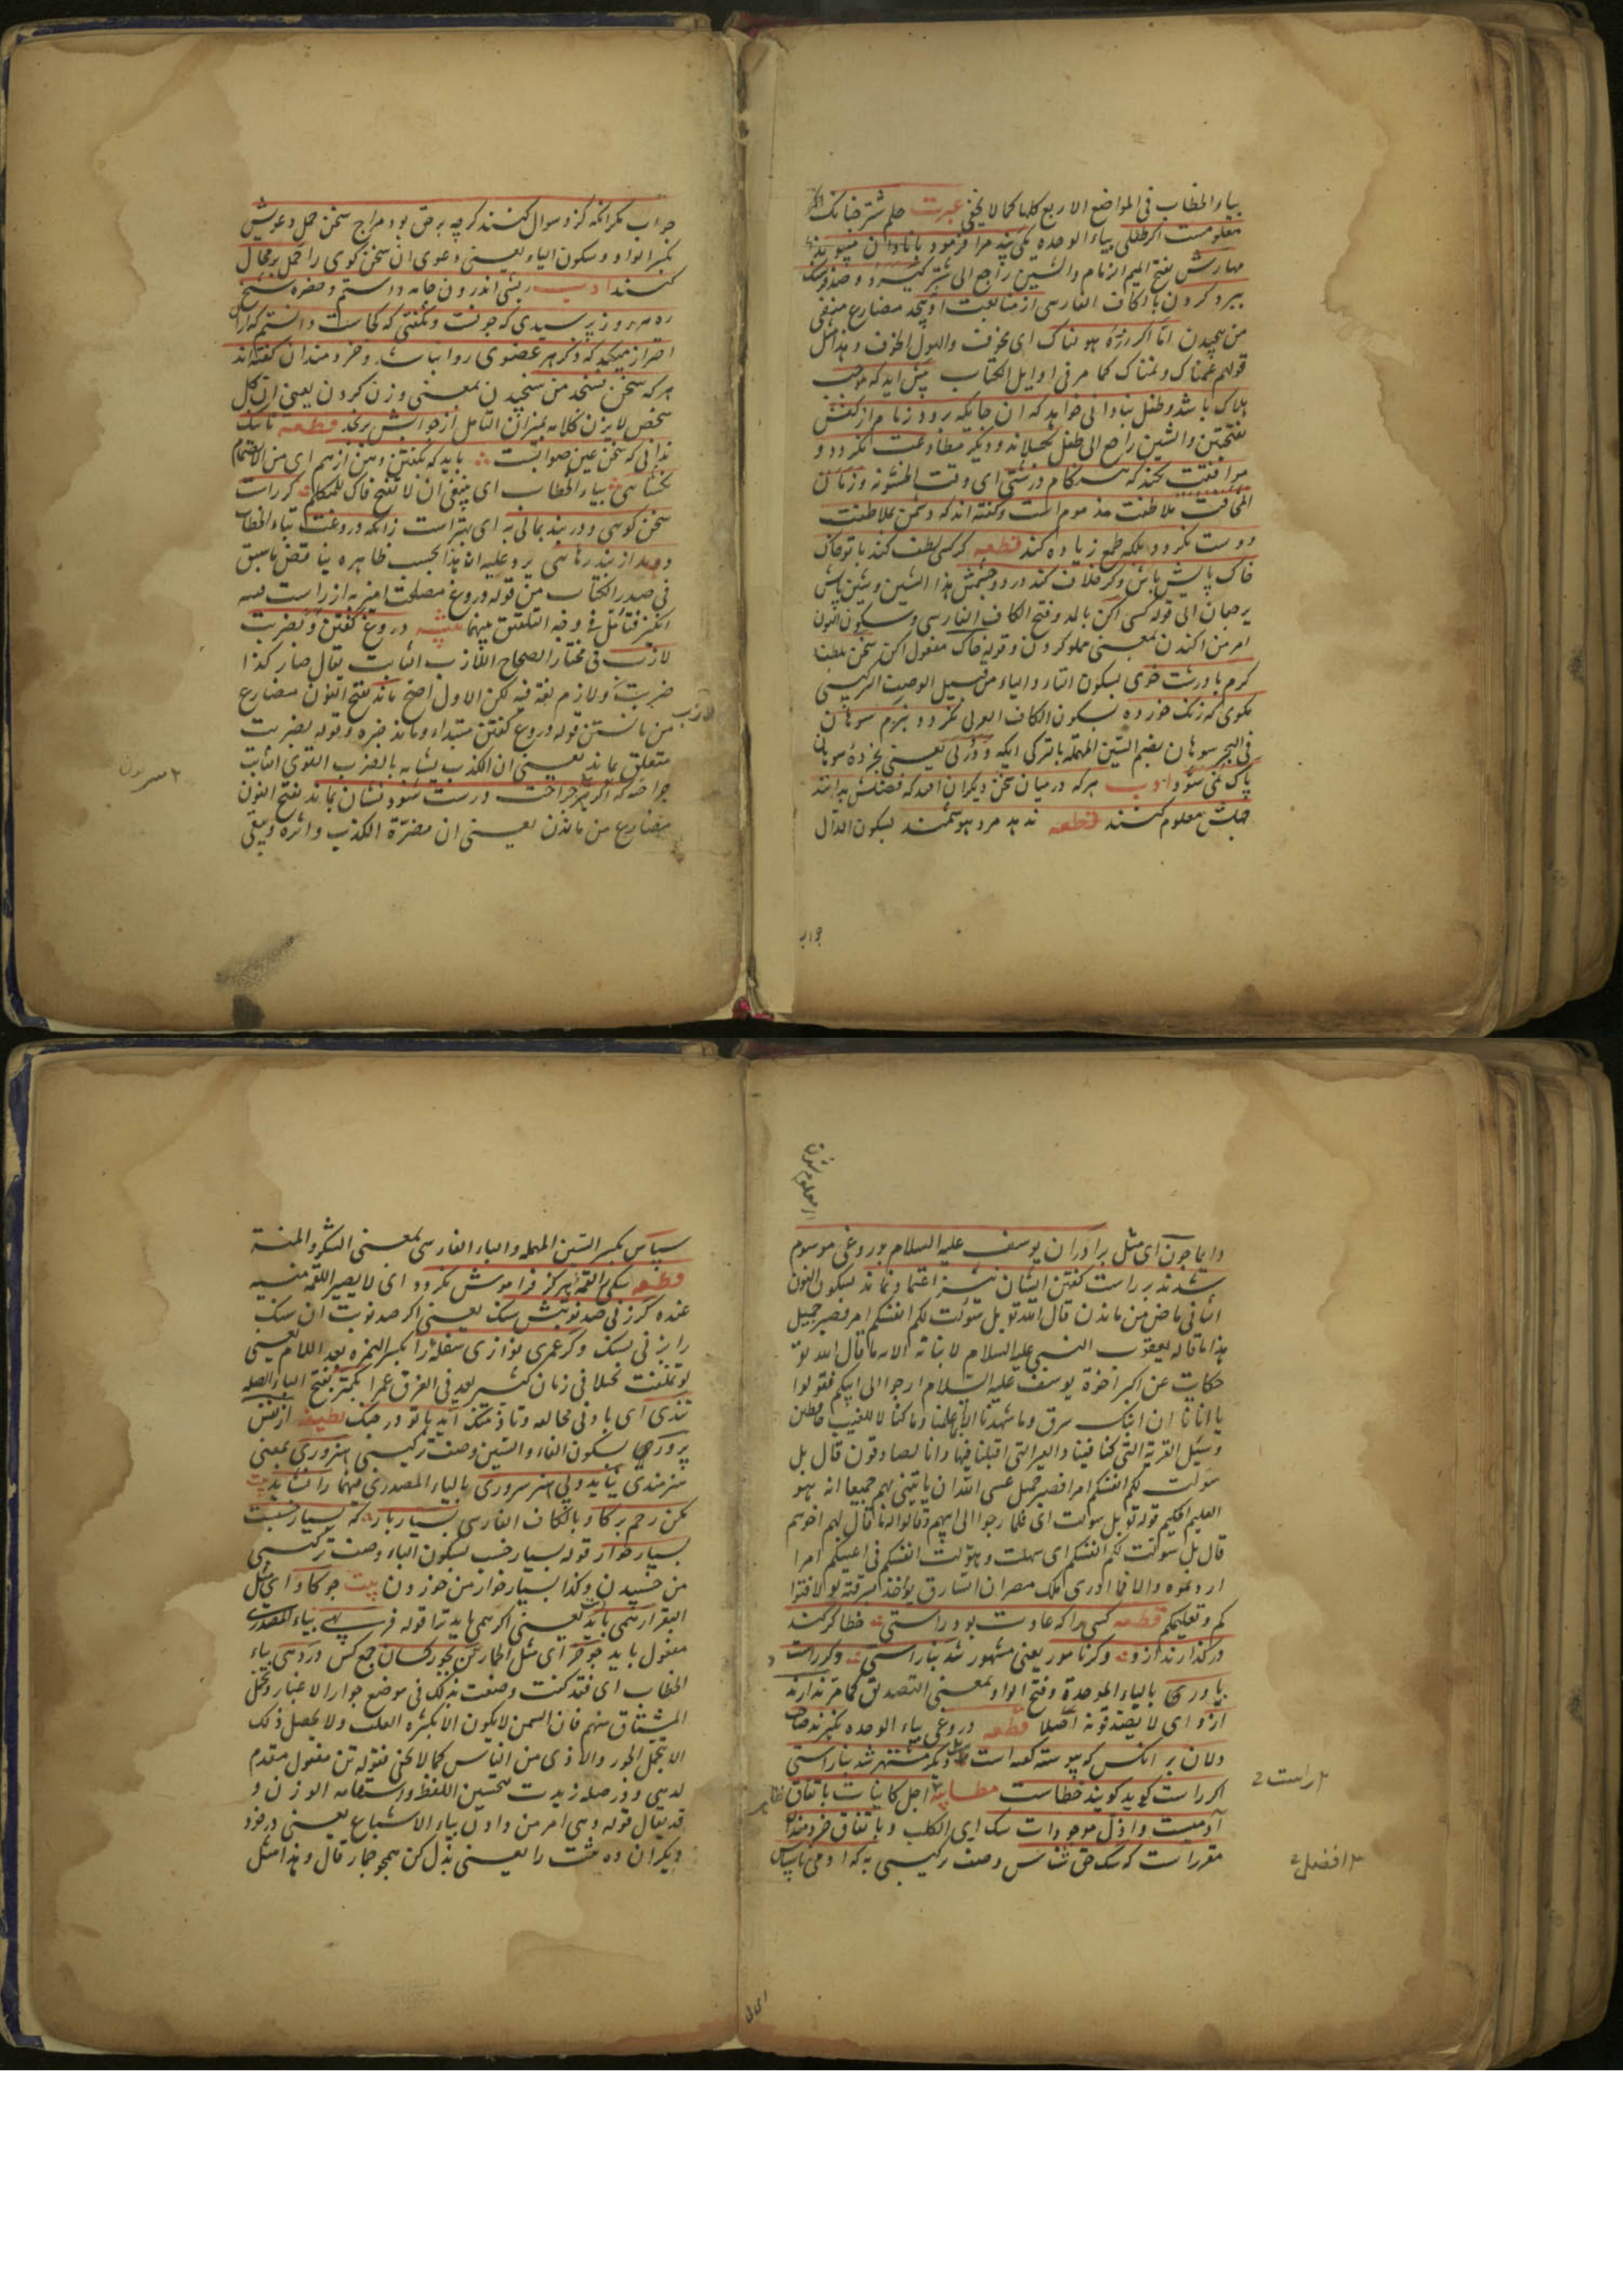 بیاء الخطاب فی المواضع الاربع کلها کما لا یخفی عبرت حلم شتر چنانک
معلومست اکر طفلی بیاء الوحده یکی
مهارش بفتح المیم الزمام والشین راجع الی شتر کیرد و صد فرسنک
ببرد کردن بالکاف الفارسی از متابعت او نپیچد مضارع منفی
من پیچیدن اما اکر دره هولناک ای مخوف والهول الخوف و هذا مثل
قولهم غمناک و نمناک کما مر فی اوایل الکتاب پیش اید که موجب
هلاک باشد و طفل بنادانی خواهد که ان جایکه رود زمام از کفش
بفتحتین والشین راجع الی طفل بکسلاند و دیکر مطاوعت نکردد و
موافقت نکند که هنکام درشتی ای وقت الخشونة و زمان
المخالفت ملاطفت مذموم است و کفته اند که دشمن بملاطفت
دوست نکردد بلکه طمع زیاده کند قطعه کر کسی لطف کند با تو خاک
خاک پایش باش و کر خلاف کند در دو چشمش هذا الشین و شین پایش
یرجعان الی قوله کسی اکن بالمد وفتح الکاف الفارسی وسکون النون
امر من اکندن بمعنی مملو کردن و قوله خاک مفعول اکن سخن بلطف
کرم با درشت خوی بسکون التاء والیاء من قبیل الوصف الترکیبی
مکوی که زنک خورده بسکون الکاف العربی نکردد بنرم سوهان
فی البحر سوهان بضم السین المهملة بالترکی ایکه
پاک نمی شود ادب هرکه در میان سخن دیکران افتد که فضلش بدانند
جهلش معلوم کنند قطعه ندهد مرد هوشمند بسکون الدال
جواب
جواب مکر انکه کزو سوال کنند کرچه بر حق بود مزاج سخن حمل دعویش
بکسر الواو وسکون الیاء یعنی دعوی ان سخن کوی را حمل بر محال
کنند ادب ریشی اندرون جامه داشتم و حضرة شیخ
ره هر روز پرسیدی که چونست و نکفتی که کجاست دانستم که ازان
احتراز میکند که ذکر هر عضوی روا نباشد و خردمندان کفته اند
هرکه سخن نسنجد من سنجیدن بمعنی وزن کردن یعنی ان کل
شخص لا یزن کلامه بمیزان التامل از جوابش برنجد قطعه تا نیک
ندانی که سخن عین صوابست باید که بکفتن دهن از هم ای من الانضمام
نکشایی بیاء الخطاب ای ینبغی ان لا تفتح فاک للتکلم کر راست
سخن کویی و در بند بمانی به ای بهتر است زانکه دروغت بتاء الخطاب
دهد از بند رهایی یرد علیه ان هذا بحسب ظاهره یناقض ما سبق
فی صدر الکتاب من قوله دروغ مصلحت امیز به از راست فتنه
انکیز فتامل فی وجه التلفیق بینهما دروغ کفتن بضربت
لازب فی مختار الصحاح اللازب الثابت یقال صار کذا
ضربت ولازم لغة فیه لکن الاول افصح ماند بفتح النون مضارع
من مانستن قوله دروغ کفتن مبتداء وماند خبره وقوله بضربت
متعلق بماند یعنی ان الکذب یشابه بالضرب القوی الثابت
جراحته که اکر چه جراحت درست شود نشان بماند بفتح النون
مضارع من ماندن یعنی ان مضرة الکذب واثره ویبقی
دایما چون ای مثل برادران یوسف علیه السلام بدروغی موسوم
شدند بر راست کفتن ایشان نیز اعتماد نماند بسکون النون
الثانی ماض من ماندن قال الله تع بل سولت لکم انفسکم امر فصبر جمیل
هذا ما قاله یعقوب النبی علیه السلام لابنائه قال الله تع
حکایت عن اکبر اخوة یوسف علیه السلام ارجوا الی ابیکم فقولوا
یا ابانا ان ابنک سرق وما شهدنا الا بما علمنا وما کنا للغیب حافظین
وسئل القریة التی کنا فیها والعیر التی اقبلنا فیها وانا لصادقون قال بل
سولت لکم انفسکم امرا فصبر جمیل عسی الله ان یاتینی بهم جمیعا انه هو
العلیم الحکیم قوله تع بل سولت ای فلما رجوا الی ابیهم وقالوا له ما قال لهم اخوهم
قال بل سولت لکم انفسکم ای سهلت وهونت انفسکم فی اعینکم امرا
اردتموه والا فما ادری الملک مصر ان السارق یؤخذ بسرقته لولا فتوا
کم وتعلیمکم قطعه کسی را که عادت بود راستی خطا کر کند
در کذارند ازو وکر نامور یعنی مشهور شد بناراستی وکر راست
باور بالباء الموحدة وفتح الواو بمعنی التصدیق کما مر ندارند
ازو ای لا یصدقونه اصلا قطعه دروغی بیاء الوحده نکیرند صاحب
دلان بر انکس که پیوسته کفته است راست و دیکر مشتهر شد بناراستی
اکر راست کوید کویند خطاست مطایبه اجل کاینات باتفاق
آدمیست واذل موجودات سک ای الکلب وباتفاق خردمندان
مقرر است که سک حق شناس وصف ترکیبی به که ادمی ناسپاس
سپاس بکسر السین المهملة والباء الفارسی بمعنی الشکر والمنة
قطعه سکی را لقمه هرکز فراموش نکردد ای لا یصیر اللقمة منسیه
عنده کر زنی صد نوبتش سنک یعنی اکر صد نوبت ان سک
را بزنی بسنک وکر عمری نوازی سفله را بکسر الهمزه بعد اللام یعنی
لو تلطفت بخیلا فی زمان کثیر یعد فی العرف عمرا بکمتر بفتح الباء الصله
تندی ای بادنی مخالفة آید با تو در جنک لطیفه از نفس
پرور بسکون الفاء والسین وصف ترکیبی هنروری بمعنی
هنرمندی نیاید وبی هنر سروری بالیاء المصدری فیهما را نشاید بیت
مکن رحم بر کاو بالکاف الفارسی بسیار بار که بسیار خسبت
بسیار خوار قوله بسیار خسب بسکون الباء وصف ترکیبی
من خسپیدن وکذا بسیار خوار من خوردن بیت چو کاو ای مثل
البقر ار همی باید یعنی اکر همی باید ترا قوله فربهی بیاء المصدری
مفعول باید چو خر ای مثل الحمار تن بجور کسان جمع کس در دهی بیاء
الخطاب ای فقد کنت وضعت بدنک فی موضع جوار الاغبار وتحمل
المشاق منهم فان السمن لا یکون الا بکثرة العلف ولا یحصل ذلک
الا بتحمل الجور والاذی من الناس کما لا یخفی فقوله تن مفعول مقدم
لدهی ودر صله زیدت لتحسین اللفظ واستقامه الوزن و
قد یقال قوله دهی امر من دادن بیاء الاشباع یعنی در خود
دیکران ده تنت را یعنی بذل کن همچو حمار قال وهذا مثل